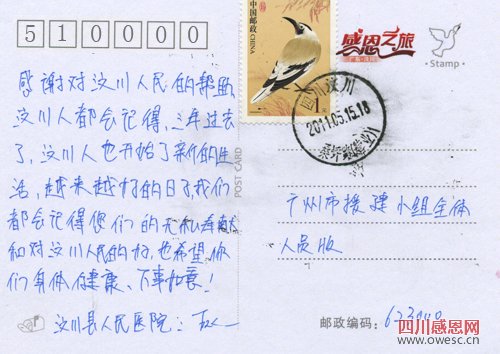 510000
中国邮政
CHINA
1元
感恩之旅
广东·汶川
·Stamp·
感谢对汶川人民的帮助
汶川人都会记得,三年过去
了,汶川人也开始了新的生
活,越来越好的日子,我们
都会记得您们的无私奉献
和对汶川人民的好,也希望你
们身体健康、万事如意!
汶川县人民医院:
POST CARD
四川汶川
2011.05.15.18
广州市援建小组全体
人员收
邮政编码:
四川感恩网
www.owesc.cn